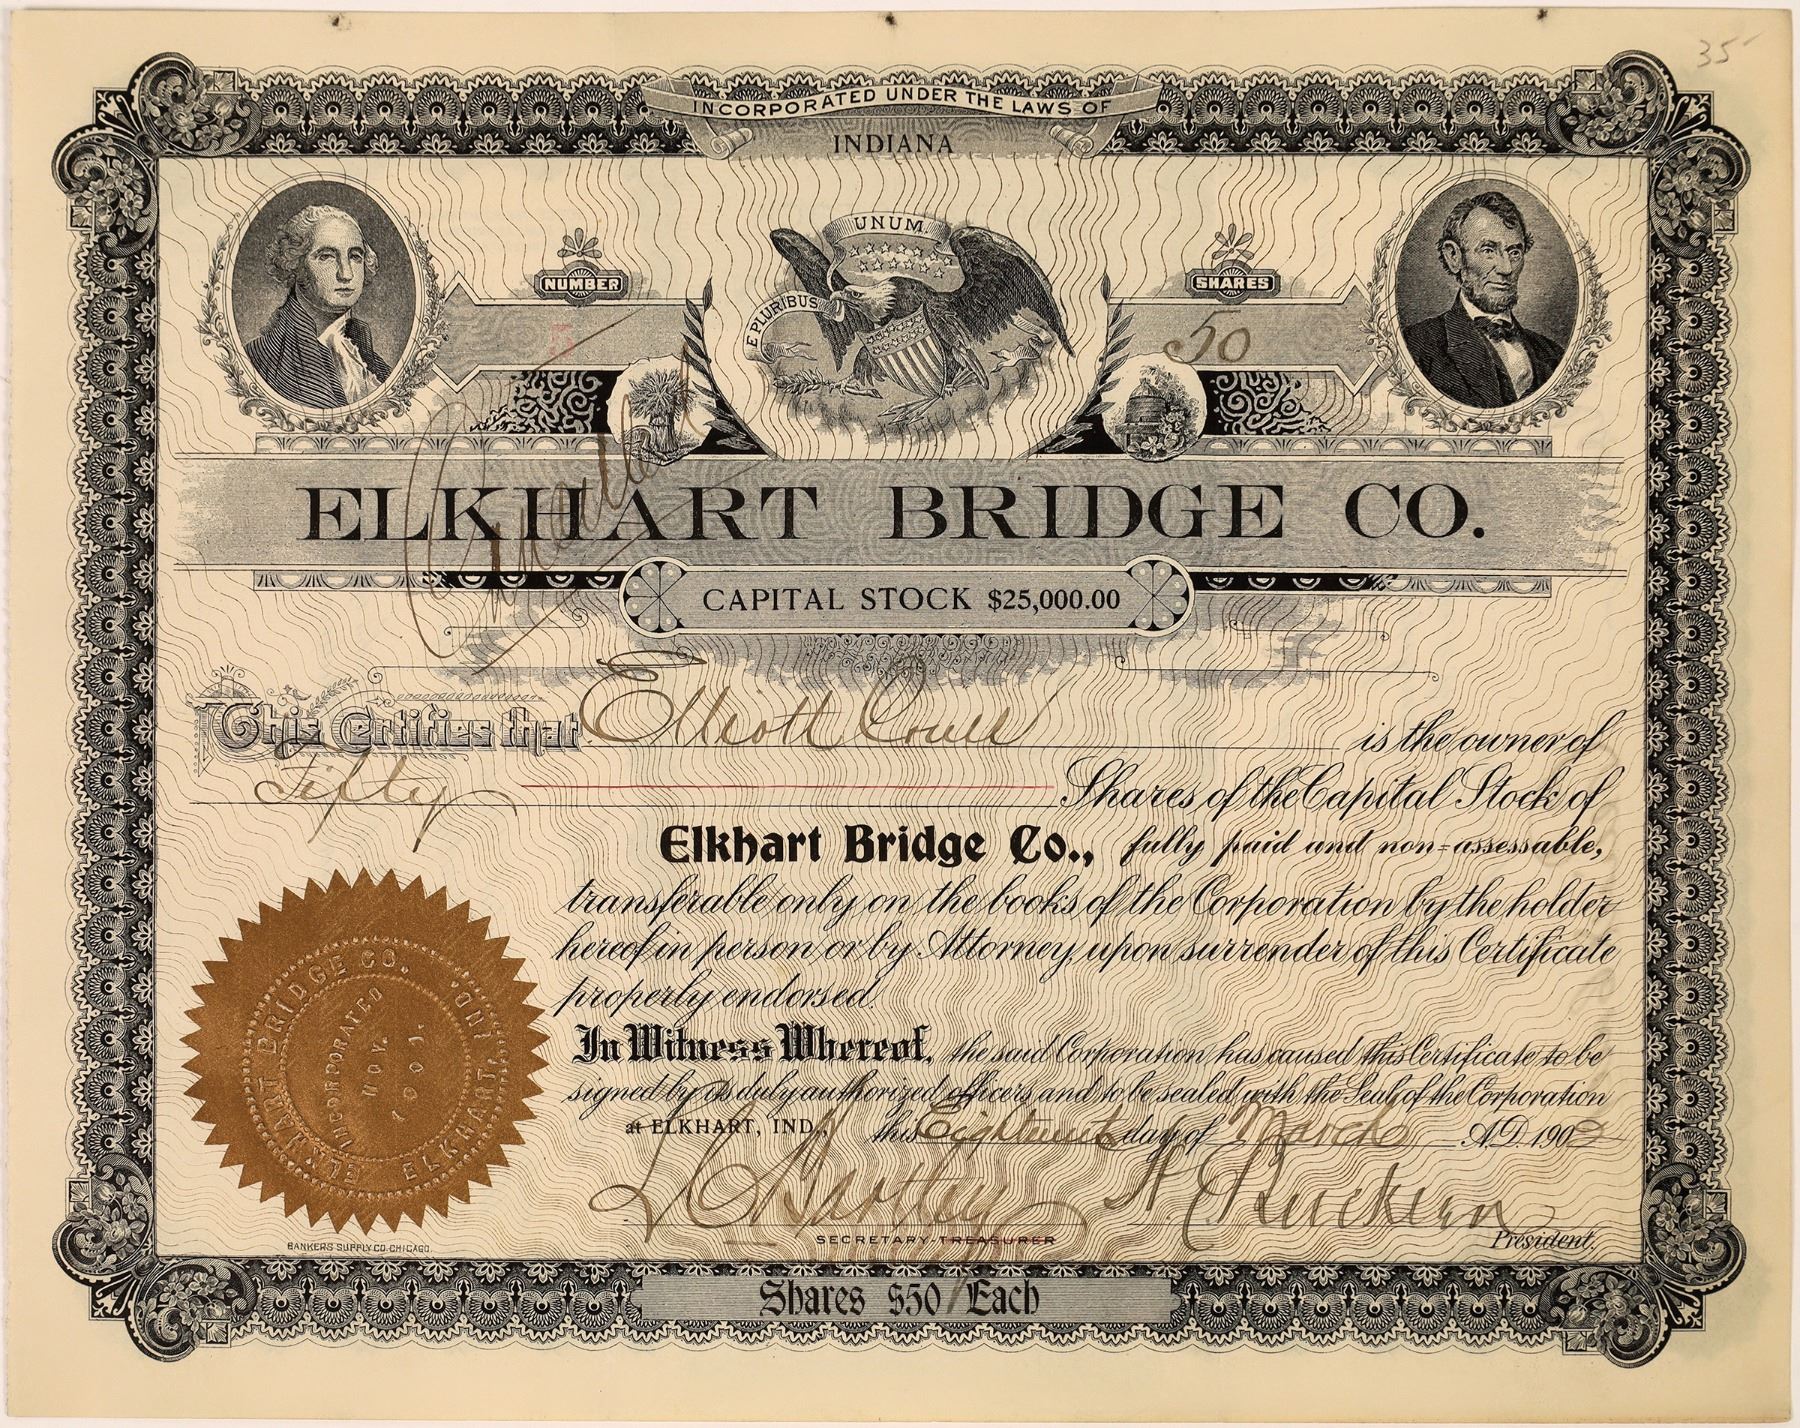 35
INCORPORATED UNDER THE LAWS OF
INDIANA
E PLURIBUS UNUM
NUMBER
SHARES
5
50
Cancelled
ELKHART BRIDGE CO.
CAPITAL STOCK $25,000.00
This Certifies that Elliott Crull is the owner of
Fifty Shares of the Capital Stock of
Elkhart Bridge Co., fully paid and non=assessable,
transferable only on the books of the Corporation by the holder
hereof in person or by Attorney, upon surrender of this Certificate
properly endorsed.
In Witness Whereof, the said Corporation has caused this Certificate to be
signed by its duly authorized officers and to be sealed with the Seal of the Corporation
at ELKHART, IND., this Eighteenth day of March A.D. 1902
ELKHART BRIDGE CO. ELKHART, IND.
INCORPORATED
NOV.
1901.
SECRETARY-TREASURER
President.
BANKERS SUPPLY CO. CHICAGO.
Shares $50 Each